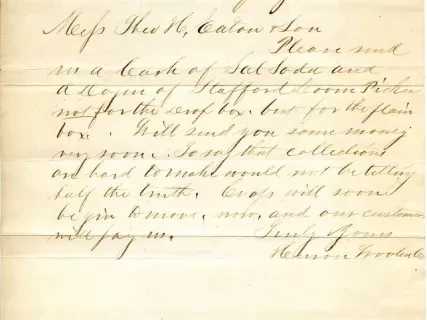 Mess Theo H. Eaton & Son
Please send
us a Cask of Sal Soda and
a Dozen of Stafford Loom Pickers
not for the drop box, but for the plain
box. Will send you some money
very soon. To say that collections
are hard to make would not be telling
half the truth. Crops will soon
begin to move, now, and our customers
will pay us. Truly Yours
Woolen Co